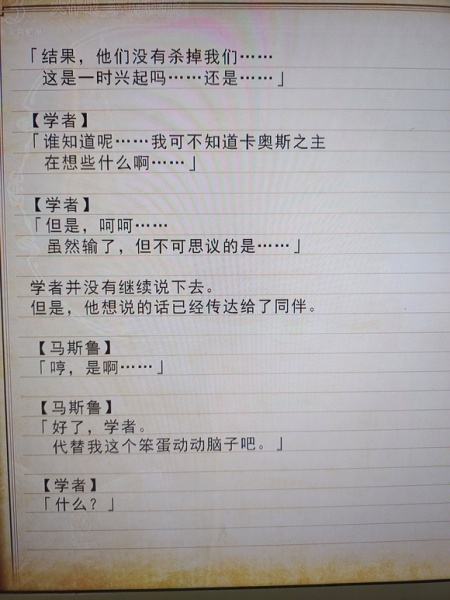 「结果，他们没有杀掉我们……
这是一时兴起吗……还是……」
【学者】
「谁知道呢……我可不知道卡奥斯之主
在想些什么啊……」
【学者】
「但是，呵呵……
虽然输了，但不可思议的是……」
学者并没有继续说下去。
但是，他想说的话已经传达给了同伴。
【马斯鲁】
「哼，是啊……」
【马斯鲁】
「好了，学者。
代替我这个笨蛋动动脑子吧。」
【学者】
「什么？」